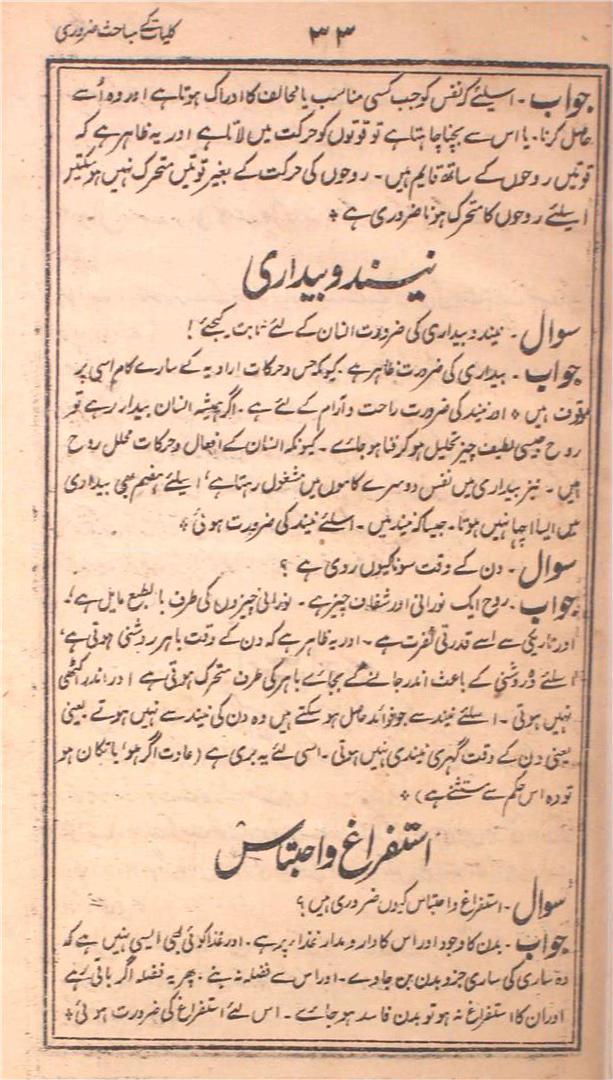 ۳۳
کلیات کے مباحث ضروری
جواب۔ اسلئے کہ نفس کو جب کسی مناسب یا مخالف کا ادراک ہوتا ہے اور وہ اُسے
حاصل کرنا۔ یا اس سے بچنا چاہتا ہے تو قوتوں کو حرکت میں لاتا ہے اور یہ ظاہر ہے کہ
قوتیں روحوں کے ساتھ قایم ہیں۔ روحوں کی حرکت کے بغیر قوتیں متحرک نہیں ہوسکتیں
اسلئے روحوں کا متحرک ہونا ضروری ہے ٭
نیند و بیداری
سوال۔ نیند و بیداری کی ضرورت انسان کے لئے ثابت کیجئے!
جواب۔ بیداری کی ضرورت ظاہر ہے۔ کیونکہ حس و حرکات ارادیہ کے سارے کام اسی پر
موقوف ہیں ٭ اور نیند کی ضرورت راحت و آرام کے لئے ہے۔ اگر ہمیشہ انسان بیدار رہے تو
روح جیسی لطیف چیز تحلیل ہوکر فنا ہوجائے۔ کیونکہ انسان کے افعال و حرکات محلل روح
ہیں۔ نیز بیداری میں نفس دوسرے کاموں میں مشغول رہتا ہے، اسلئے ہضم بھی بیداری
میں ایسا اچھا نہیں ہوتا۔ جیسا کہ نیند میں۔ اسلئے نیند کی ضرورت ہوئی ٭
سوال۔ دن کے وقت سونا کیوں ردی ہے ؟
جواب۔ روح ایک نورانی اور شفاف چیز ہے۔ نورانی چیزوں کی طرف بالطبع مایل ہے۔
اور تاریکی سے اسے قدرتی نفرت ہے۔ اور یہ ظاہر ہے کہ دن کے وقت باہر روشنی ہوتی ہے،
اسلئے وُہ روشنی کے باعث اندر جانے کے بجائے باہر کی طرف متحرک ہوتی ہے اور اندر اکٹھی
نہیں ہوتی۔ اسلئے نیند سے جو فوائد حاصل ہو سکتے ہیں وہ دن کی نیند سے نہیں ہوتے یعنی
یعنی دن کے وقت گہری نیند ہی نہیں ہوتی۔ اسی لئے یہ بری ہے (عادت اگر ہو، یا تکان ہو
تو وہ اس حکم سے مستثنے ہے) ٭
استفراغ و احتباس
سوال۔ استفراغ و احتباس کیوں ضروری ہیں؟
جواب۔ بدن کا وجود اور اس کا دارو مدار غذاء پر ہے۔ اور غذا کوئی بھی ایسی نہیں ہے کہ
وہ ساری کی ساری جزو بدن بن جاوے۔ اور اس سے فضلہ نہ بنے۔ پھر یہ فضلہ اگر باقی رہے
اور ان کا استفراغ نہ ہو تو بدن فاسد ہوجائے۔ اس لئے استفراغ کی ضرورت ہوئی ٭